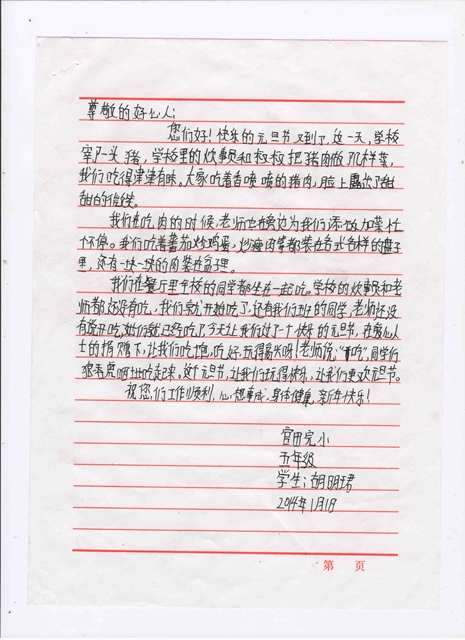 尊敬的好心人:
您们好!快乐的元旦节又到了,这一天,学校
宰了一头猪,学校里的炊事员和叔叔把猪肉做几样菜,
我们吃得津津有味。大家吃着香喷喷的猪肉,脸上露出了甜
甜的
我们在吃肉的时候,老师也在旁边为我们添饭加菜忙
个不停。我们吃着番茄炒鸡蛋,炒瘦肉等都装在各式各样的盘子
里,还有一块一块的肉装在盆子里。
我们在餐厅里全校的同学都坐在一起吃。学校的炊事员和老
师都还没有吃,我们就开始吃了,还有我们班的同学,老师还没
有说开吃,她们就已经吃了,今天让我们过了一个快乐的元旦节,在爱心人
士的捐 下,让我们吃饱,吃好,玩得高兴呀!老师说:"开吃",同学们
狼吞虎咽地吃起来,这个元旦节,让我们玩得快乐,让我们更欢元旦节。
祝您们工作顺利,心想事成,身体健康,新年快乐!
官田完小
五年级
学生:胡明珺
2014年1月1日
第 页